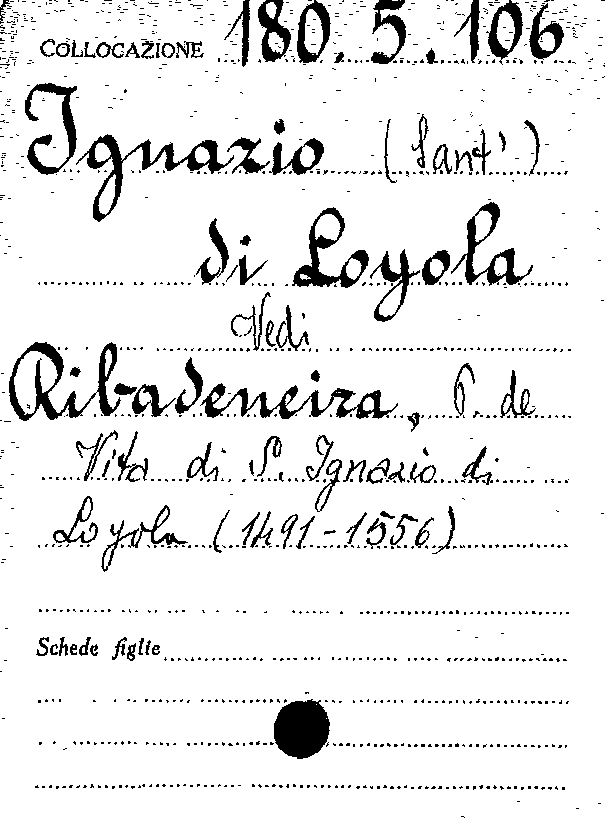 COLLOCAZIONE 180.5.106
Ignazio (Sant')
di Loyola
Vedi
Ribadeneira, P. de
Vita di S. Ignazio di
Loyola (1491-1556)
Schede figlie